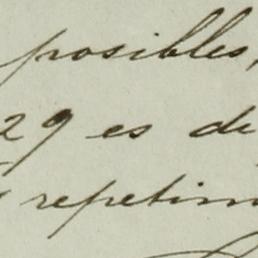 posibles,
29 es de
repetim